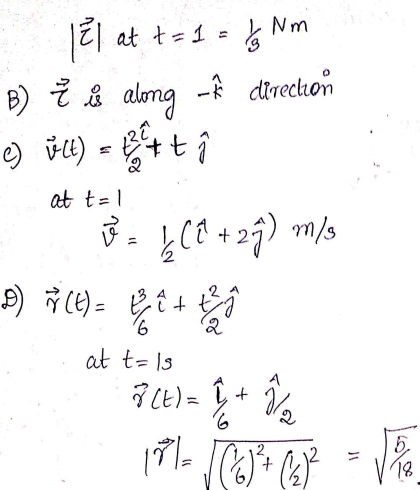 |τ⃗| at t = 1 = 1/3 Nm
B) τ⃗ is along -k̂ direction
c) v⃗(t) = t²/2 î + t ĵ
at t=1
v⃗ = 1/2 (î + 2ĵ) m/s
D) r⃗(t) = t³/6 î + t²/2 ĵ
at t=1s
r⃗(t) = î/6 + ĵ/2
|r⃗| = √((1/6)² + (1/2)²) = √(5/18)